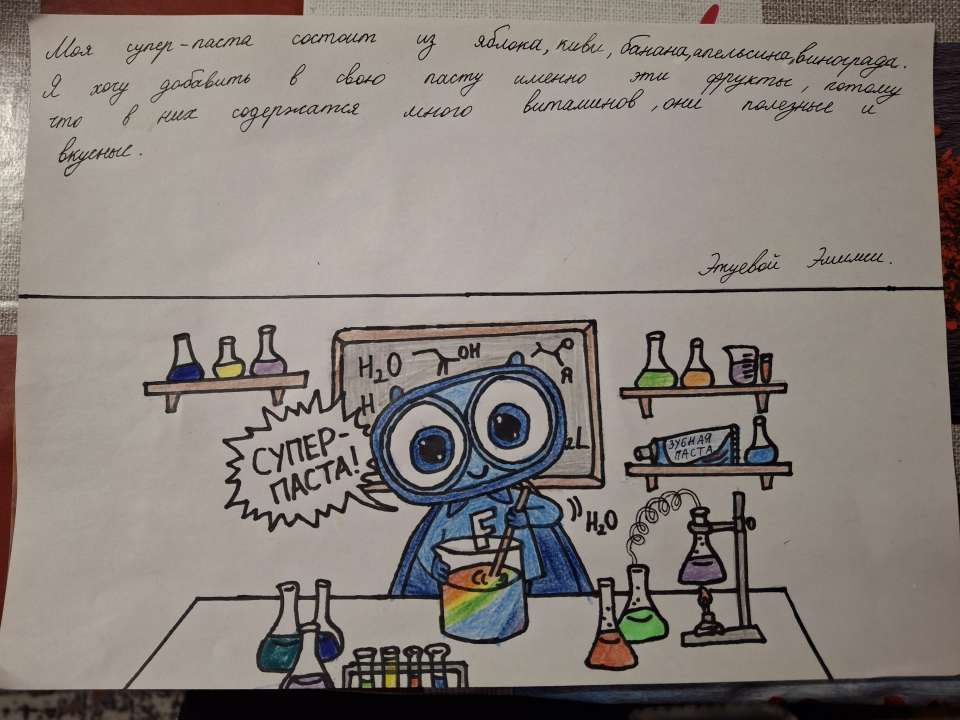 Моя супер-паста состоит из яблока, киви, банана, апельсина, винограда.
Я хочу добавить в свою пасту именно эти фрукты, потому
что в них содержатся много витаминов, они полезные и
вкусные.
Этуевой Эмилии.
H₂O
OH
O
Я
H
СУПЕР-
ПАСТА!
ЗУБНАЯ
ПАСТА
F
H₂O